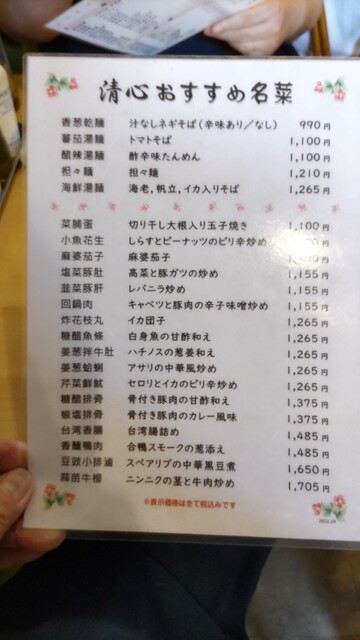 清心おすすめ名菜
香葱乾麺 汁なしネギそば(辛味あり/なし) 990円
蕃茄湯麺 トマトそば 1,100円
醋辣湯麺 酢辛味たんめん 1,100円
担々麺 担々麺 1,210円
海鮮湯麺 海老,帆立,イカ入りそば 1,265円
菜脯蛋 切り干し大根入り玉子焼き 1,100円
小魚花生 しらすとピーナッツのピリ辛炒め 円
麻婆茄子 麻婆茄子 円
塩菜豚肚 高菜と豚ガツの炒め 1,155円
韮菜豚肝 レバニラ炒め 1,155円
回鍋肉 キャベツと豚肉の辛子味噌炒め 1,155円
炸花枝丸 イカ団子 1,265円
糖醋魚條 白身魚の甘酢和え 1,265円
姜葱拌牛肚 ハチノスの葱姜和え 1,265円
姜葱蛤蜊 アサリの中華風炒め 1,265円
芹菜鮮魷 セロリとイカのピリ辛炒め 1,265円
糖醋排骨 骨付き豚肉の甘酢和え 1,375円
椒塩排骨 骨付き豚肉のカレー風味 1,375円
台湾香腸 台湾腸詰め 1,485円
香醺鴨肉 合鴨スモークの葱添え 1,485円
豆豉小排滷 スペアリブの中華黒豆煮 1,650円
蒜苗牛柳 ニンニクの茎と牛肉炒め 1,705円
※表示価格は全て税込みです